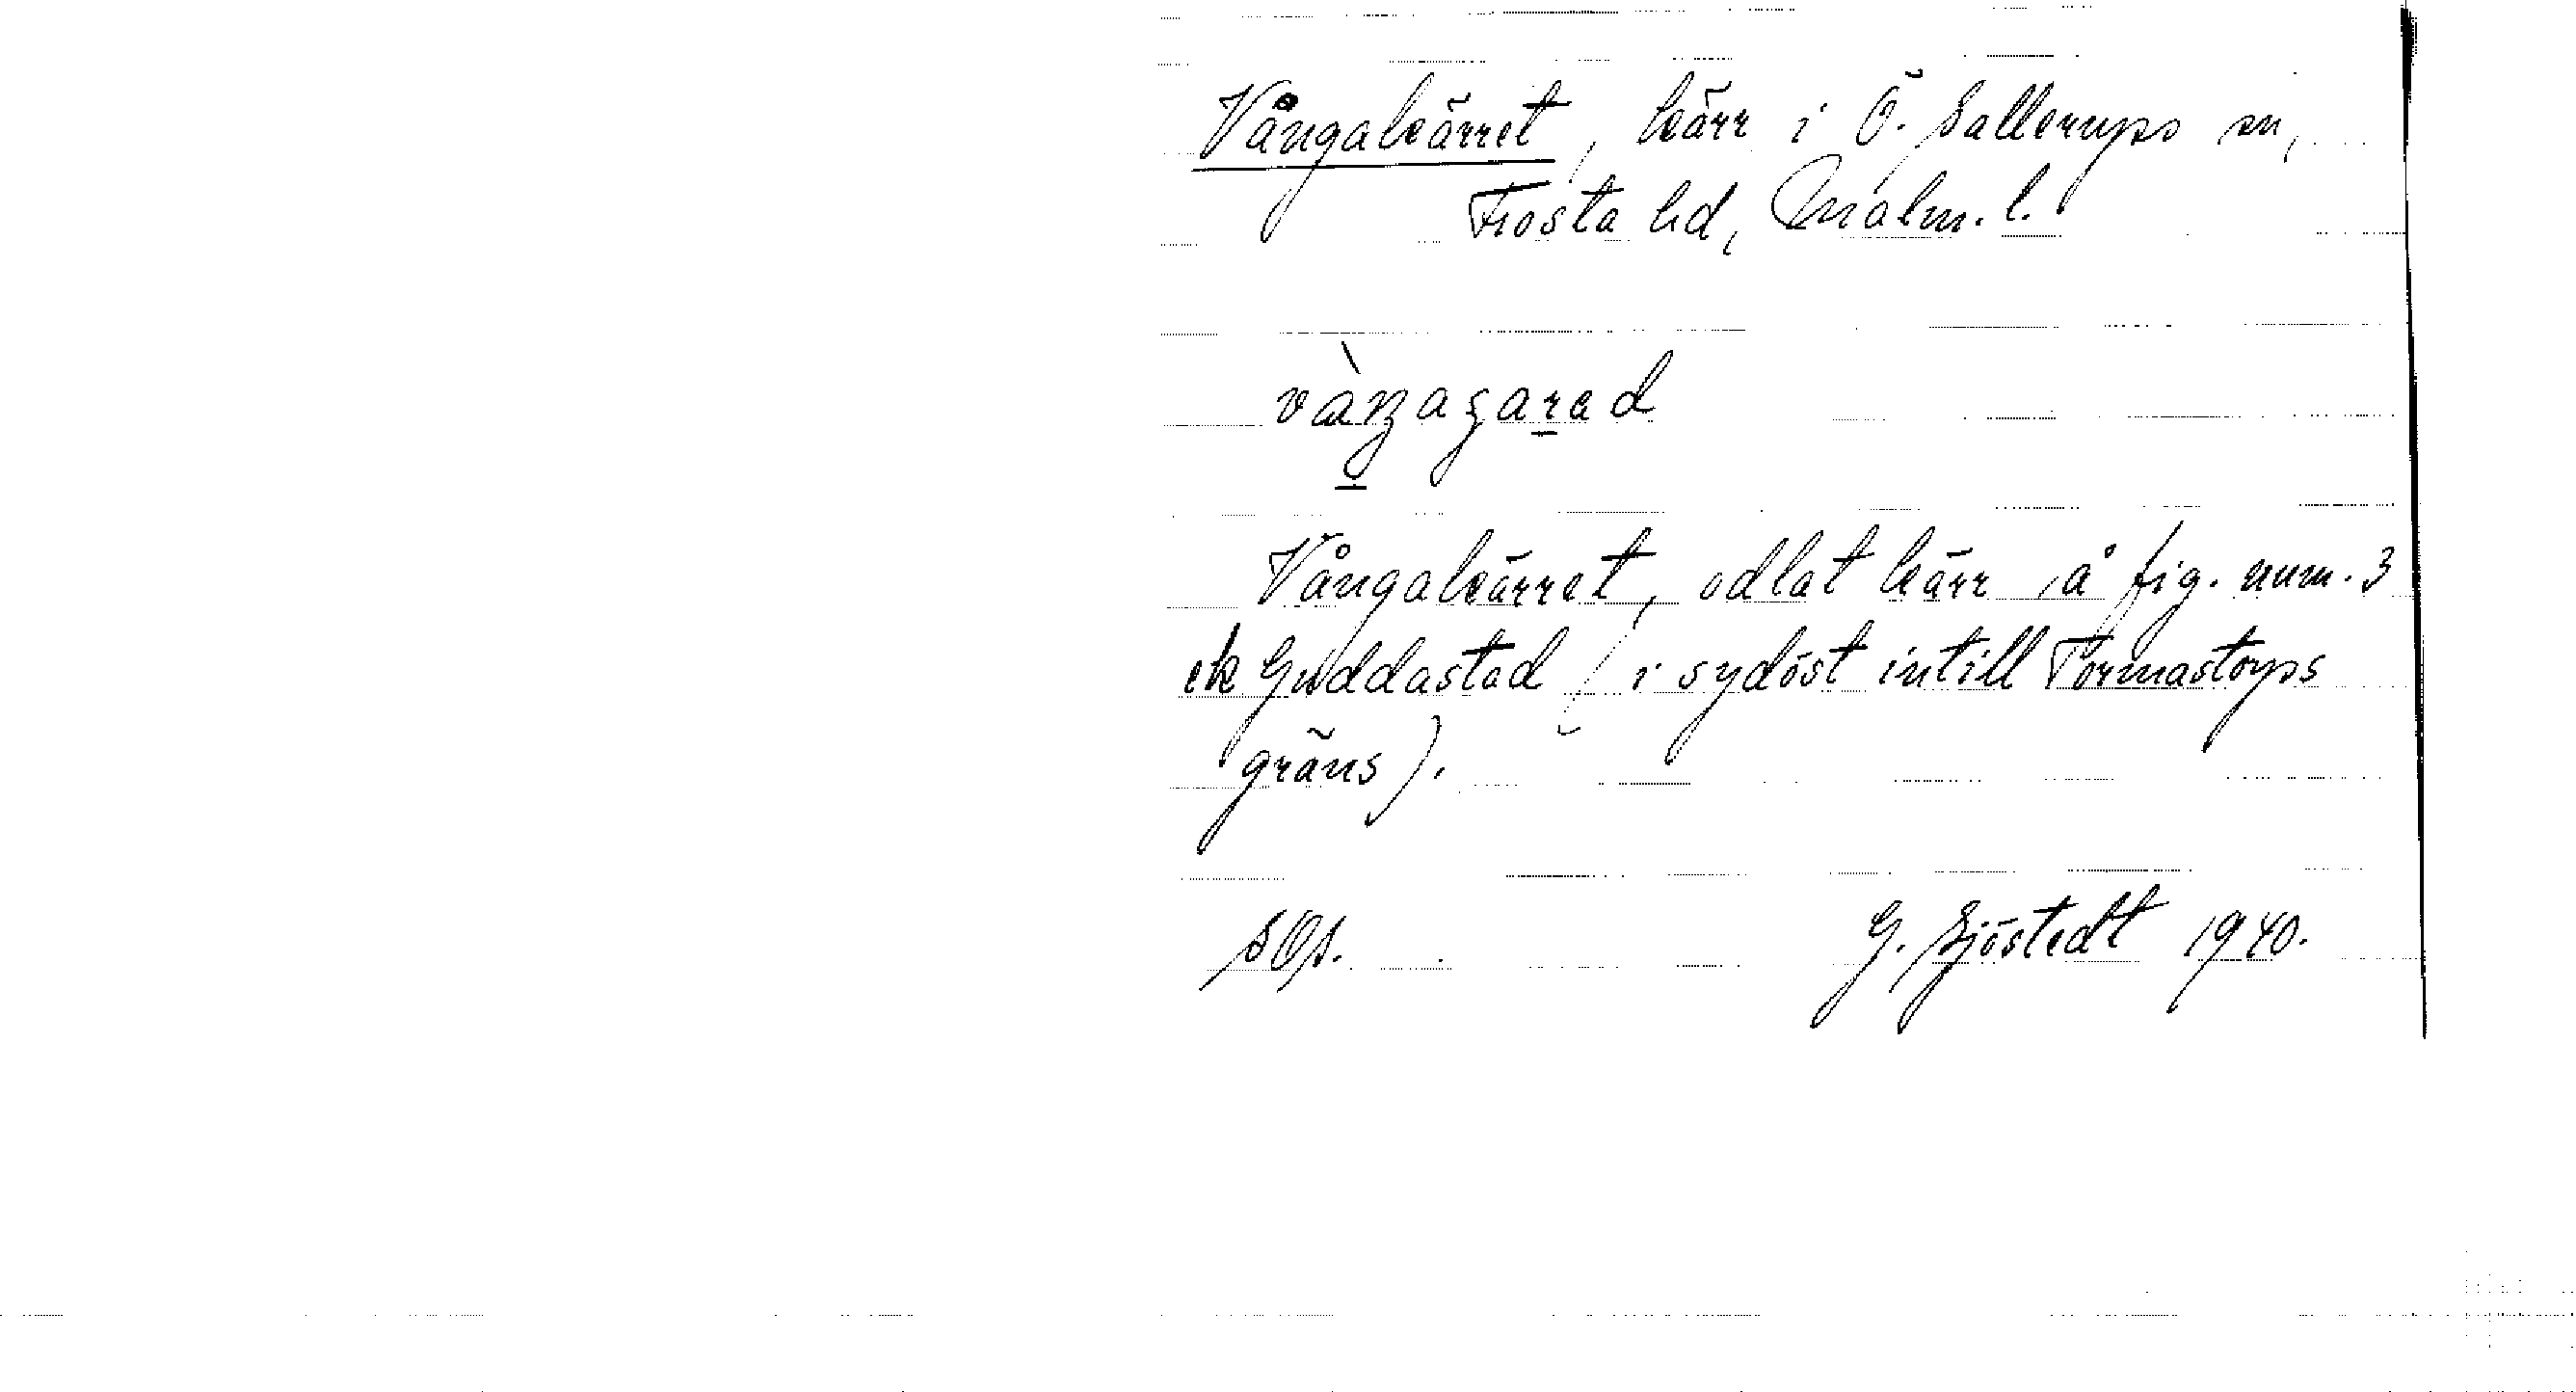 Vångakärret, kärr i Ö. Sallerups sn,
Frosta hd, Malm. l.
Vångakärret, odlat kärr å fig. num. 3
ek Guddastad (i sydöst intill Tormastorps
gräns).
SOA. G. Sjöstedt 1940.